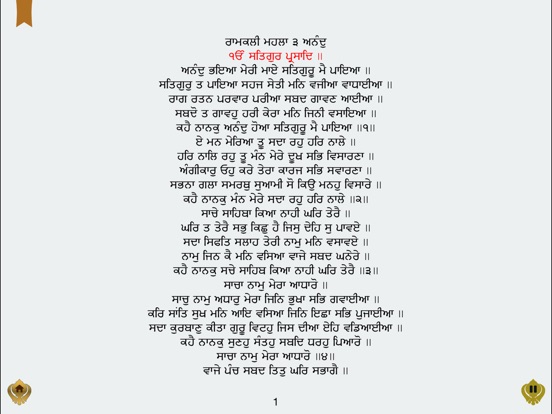 ਰਾਮਕਲੀ ਮਹਲਾ ੩ ਅਨੰਦੁ
ੴ ਸਤਿਗੁਰ ਪ੍ਰਸਾਦਿ ॥
ਅਨੰਦੁ ਭਇਆ ਮੇਰੀ ਮਾਏ ਸਤਿਗੁਰੂ ਮੈ ਪਾਇਆ ॥
ਸਤਿਗੁਰੁ ਤ ਪਾਇਆ ਸਹਜ ਸੇਤੀ ਮਨਿ ਵਜੀਆ ਵਾਧਾਈਆ ॥
ਰਾਗ ਰਤਨ ਪਰਵਾਰ ਪਰੀਆ ਸਬਦ ਗਾਵਣ ਆਈਆ ॥
ਸਬਦੋ ਤ ਗਾਵਹੁ ਹਰੀ ਕੇਰਾ ਮਨਿ ਜਿਨੀ ਵਸਾਇਆ ॥
ਕਹੈ ਨਾਨਕੁ ਅਨੰਦੁ ਹੋਆ ਸਤਿਗੁਰੂ ਮੈ ਪਾਇਆ ॥੧॥
ਏ ਮਨ ਮੇਰਿਆ ਤੂ ਸਦਾ ਰਹੁ ਹਰਿ ਨਾਲੇ ॥
ਹਰਿ ਨਾਲਿ ਰਹੁ ਤੂ ਮੰਨ ਮੇਰੇ ਦੂਖ ਸਭਿ ਵਿਸਾਰਣਾ ॥
ਅੰਗੀਕਾਰੁ ਓਹੁ ਕਰੇ ਤੇਰਾ ਕਾਰਜ ਸਭਿ ਸਵਾਰਣਾ ॥
ਸਭਨਾ ਗਲਾ ਸਮਰਥੁ ਸੁਆਮੀ ਸੋ ਕਿਉ ਮਨਹੁ ਵਿਸਾਰੇ ॥
ਕਹੈ ਨਾਨਕੁ ਮੰਨ ਮੇਰੇ ਸਦਾ ਰਹੁ ਹਰਿ ਨਾਲੇ ॥੨॥
ਸਾਚੇ ਸਾਹਿਬਾ ਕਿਆ ਨਾਹੀ ਘਰਿ ਤੇਰੈ ॥
ਘਰਿ ਤ ਤੇਰੈ ਸਭੁ ਕਿਛੁ ਹੈ ਜਿਸੁ ਦੇਹਿ ਸੁ ਪਾਵਏ ॥
ਸਦਾ ਸਿਫਤਿ ਸਲਾਹ ਤੇਰੀ ਨਾਮੁ ਮਨਿ ਵਸਾਵਏ ॥
ਨਾਮੁ ਜਿਨ ਕੈ ਮਨਿ ਵਸਿਆ ਵਾਜੇ ਸਬਦ ਘਨੇਰੇ ॥
ਕਹੈ ਨਾਨਕੁ ਸਚੇ ਸਾਹਿਬ ਕਿਆ ਨਾਹੀ ਘਰਿ ਤੇਰੈ ॥੩॥
ਸਾਚਾ ਨਾਮੁ ਮੇਰਾ ਆਧਾਰੋ ॥
ਸਾਚੁ ਨਾਮੁ ਅਧਾਰੁ ਮੇਰਾ ਜਿਨਿ ਭੁਖਾ ਸਭਿ ਗਵਾਈਆ ॥
ਕਰਿ ਸਾਂਤਿ ਸੁਖ ਮਨਿ ਆਇ ਵਸਿਆ ਜਿਨਿ ਇਛਾ ਸਭਿ ਪੁਜਾਈਆ ॥
ਸਦਾ ਕੁਰਬਾਣੁ ਕੀਤਾ ਗੁਰੂ ਵਿਟਹੁ ਜਿਸ ਦੀਆ ਏਹਿ ਵਡਿਆਈਆ ॥
ਕਹੈ ਨਾਨਕੁ ਸੁਣਹੁ ਸੰਤਹੁ ਸਬਦਿ ਧਰਹੁ ਪਿਆਰੋ ॥
ਸਾਚਾ ਨਾਮੁ ਮੇਰਾ ਆਧਾਰੋ ॥੪॥
ਵਾਜੇ ਪੰਚ ਸਬਦ ਤਿਤੁ ਘਰਿ ਸਭਾਗੈ ॥
1